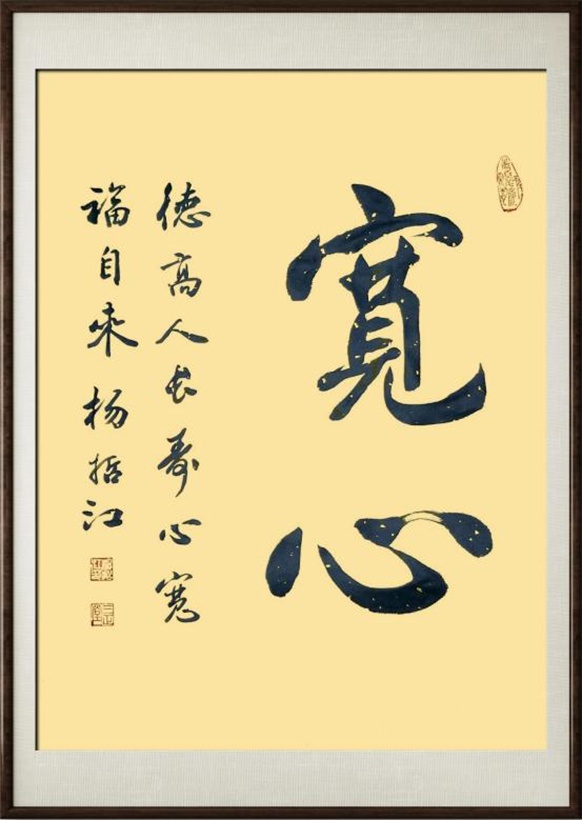 寬心
德高人长寿心寬
福自来 杨江